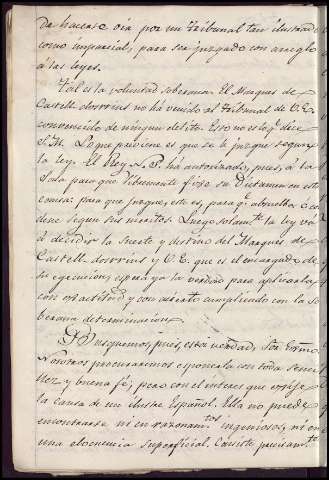 de hacerse oir por un tribunal tan ilustrado
como imparcial, para ser juzgado con arreglo
á las leyes.
Tal es la voluntad soberana. El Marques de
Castell-dosrrius no há venido al tribunal de V.E.
convencido de ningun delito. Eso no es lo q.e dice
S.M. Lo que previene es que se le juzgue segun
la ley. El Rey N.S. há autorizado, pues, á la
Sala para que libremente fixe su dictamen en esta
causa: para que juzgue, esto es, para q.e absuelva ó con
dene segun sus meritos. Luego solam.te la ley vá
á decidir la suerte y destino del Marques de
Castell-dosrrius y V.E. que es el encargado de
su egecucion, espera ya la verdad para aplicarla
con exactitud, y con acierto cumpliendo con la so
berana determinacion.
Busquemos, pues, esta verdad, Sor Exmo.
Nosotros procuraremos exponerla con toda senci
llez y buena fé; pero con el interes que exsige
la causa de un ilustre Español. Ella no puede
encontrarse ni en razonam.tos ingeniosos, ni en
una elocuencia superficial. Consiste precisam.te